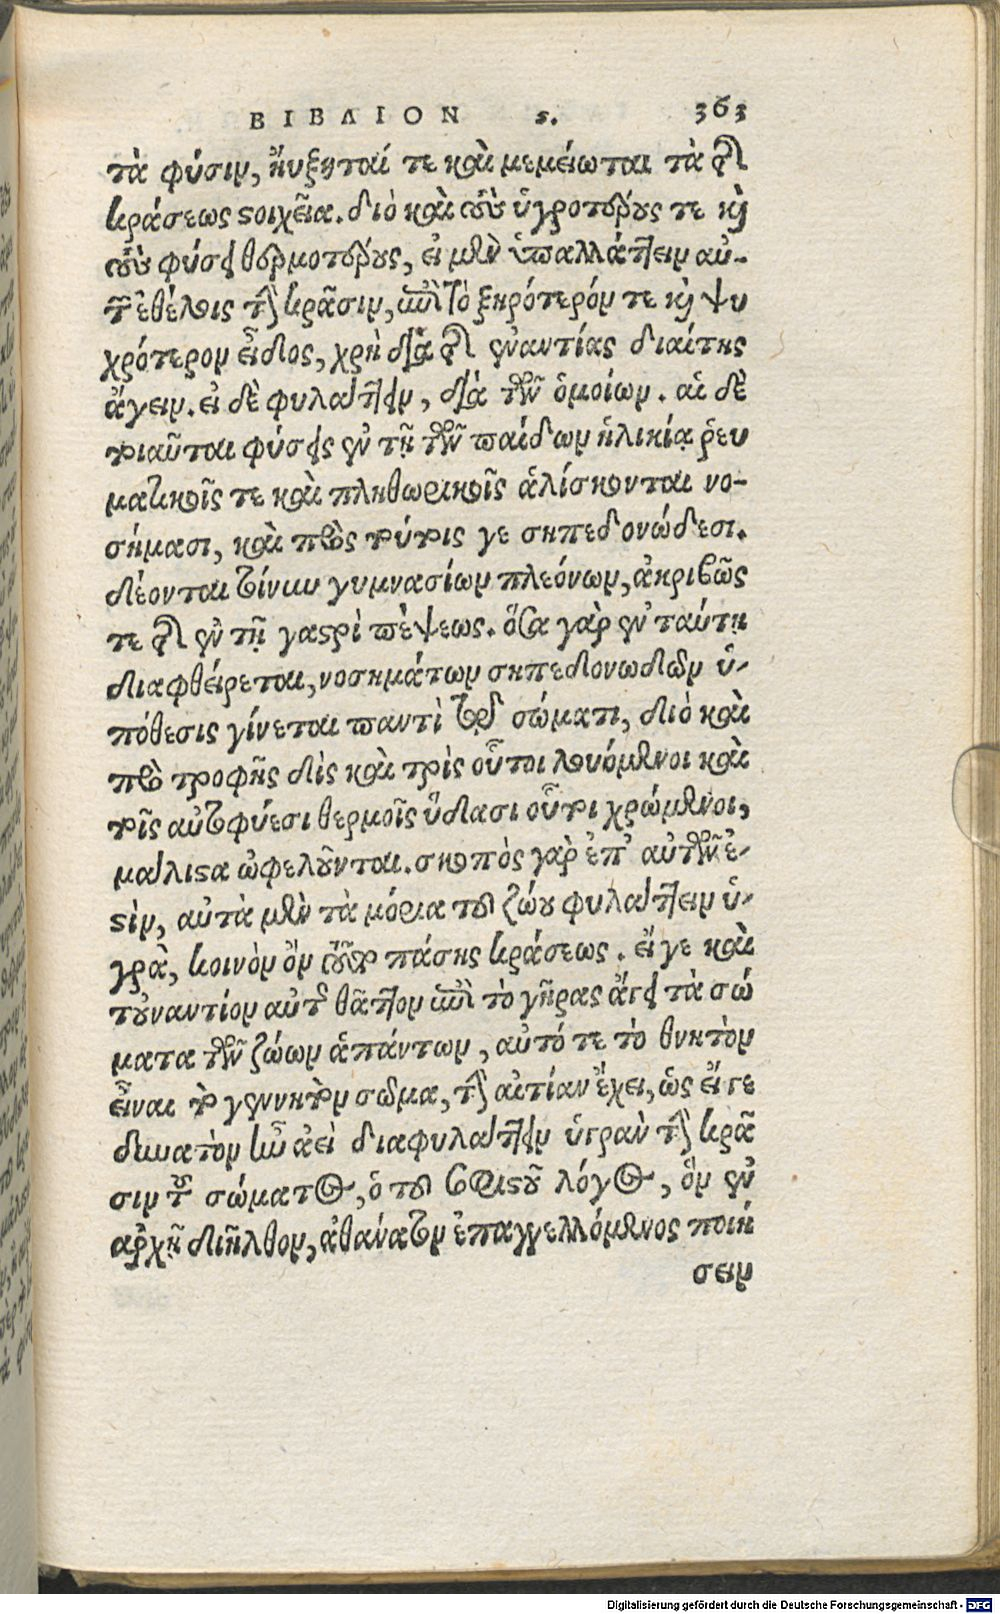 ΒΙΒΛΙΟΝ ς. 363
τὰ φύσιν, ηὔξηταί τε καὶ μεμείωται τὰ τῆς
κράσεως στοιχεῖα. διὸ καὶ τοὺς ὑγροτέρους τε καὶ
τοὺς φύσει θερμοτέρους, εἰ μὲν ὑπαλλάττειν αὐ-
τῶν ἐθέλοις τὴν κρᾶσιν, ἐπὶ τὸ ξηρότερόν τε καὶ ψυ
χρότερον εἶδος, χρὴ διὰ τῆς ἐναντίας διαίτης
ἄγειν. εἰ δὲ φυλάττειν, διὰ τῶν ὁμοίων. αἱ δὲ
τοιαῦται φύσεις ἐν τῇ τῶν παίδων ἡλικίᾳ ῥευ
ματικοῖς τε καὶ πληθωρικοῖς ἁλίσκονται νο-
σήμασι, καὶ πρὸς τούτοις γε σηπεδονώδεσι.
δέονται τοίνυν γυμνασίων πλεόνων, ἀκριβῶς
τε τῆς ἐν τῇ γαστρὶ πέψεως. ὅσα γὰρ ἐν ταύτῃ
διαφθείρεται, νοσημάτων σηπεδονωδῶν ὑ-
πόθεσις γίνεται παντὶ τῷ σώματι, διὸ καὶ
πρὸ τροφῆς δὶς καὶ τρὶς οὗτοι λουόμενοι καὶ
τοῖς αὐτοφύεσι θερμοῖς ὕδασι οὗτοι χρώμενοι,
μάλιστα ὠφελοῦνται. σκοπὸς γὰρ ἐπ' αὐτῶν ἐ-
στὶν, αὐτὰ μὲν τὰ μόρια τοῦ ζώου φυλάττειν ὑ-
γρὰ, κοινὸν ὂν τοῦτο πάσης κράσεως. εἴ γε καὶ
τοὐναντίον αὐτοῦ θᾶττον ἐπὶ τὸ γῆρας ἄγει τὰ σώ
ματα τῶν ζώων ἁπάντων, αὐτό τε τὸ θνητὸν
εἶναι τὸ γεννητὸν σῶμα, τὴν αἰτίαν ἔχει, ὡς εἴ γε
δυνατὸν ἦν ἀεὶ διαφυλάττειν ὑγρὰν τὴν κρᾶ
σιν τοῦ σώματος, ὁ τοῦ σοφιστοῦ λόγος, ὃν ἐν
ἀρχῇ διῆλθον, ἀθάνατον ἐπαγγελλόμενος ποιή
σειν
Digitalisierung gefördert durch die Deutsche Forschungsgemeinschaft - DFG